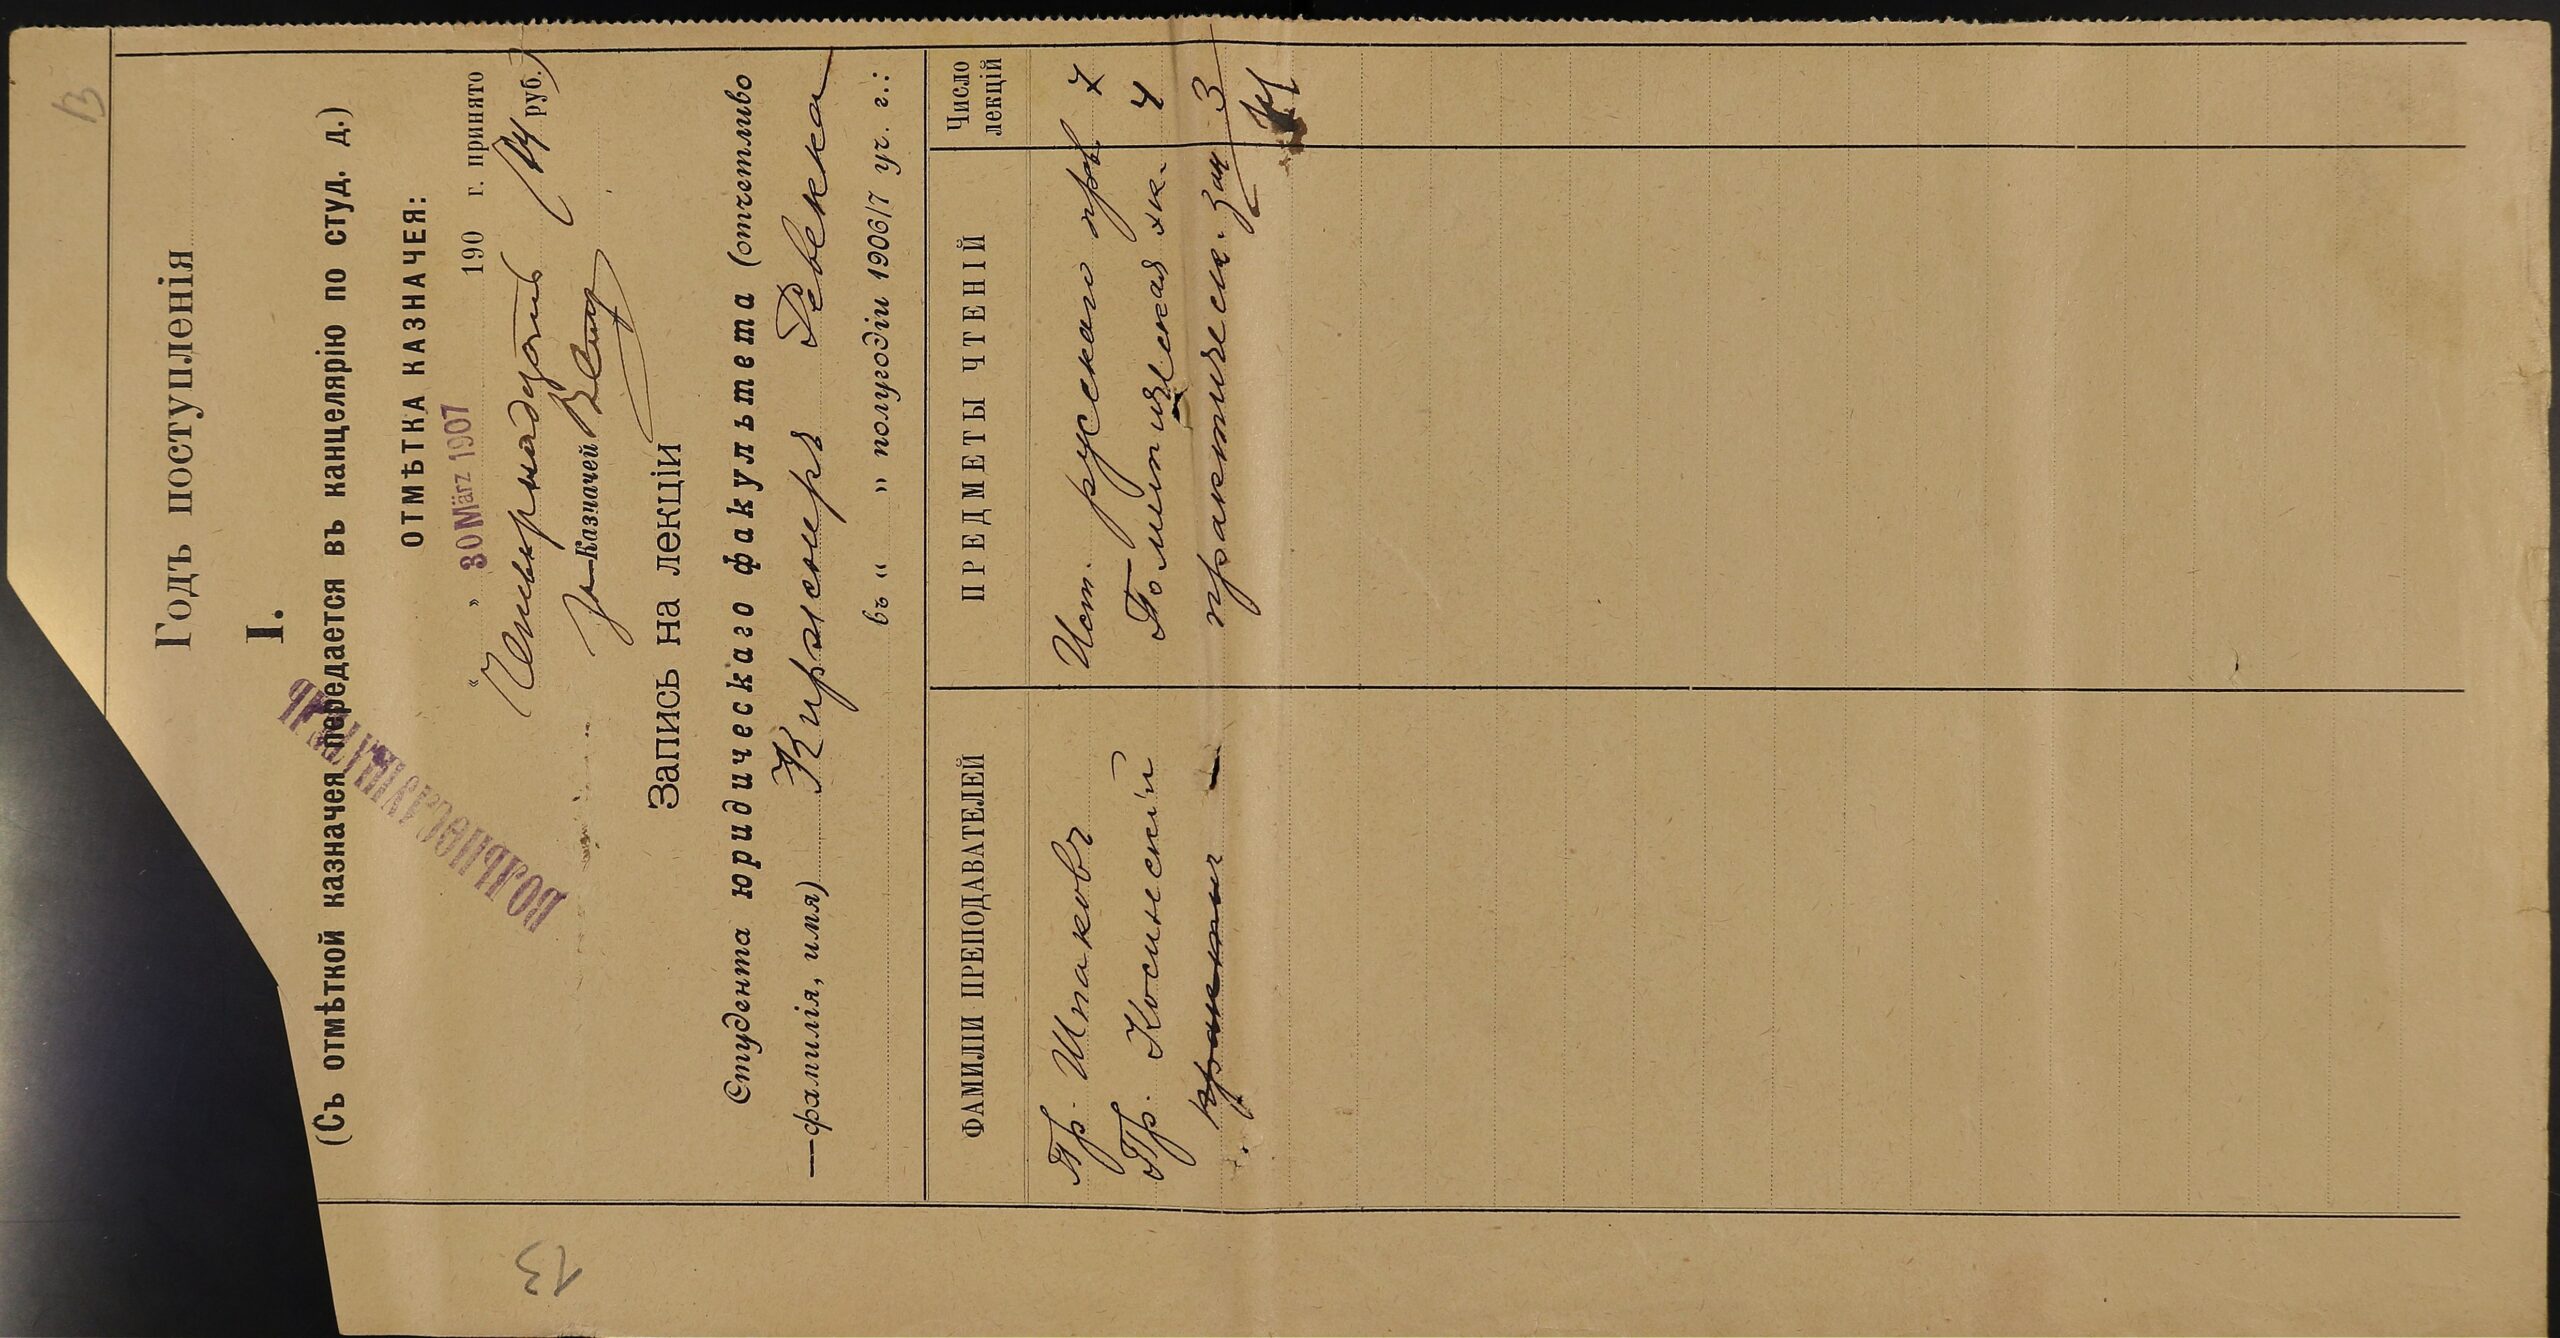 13
Годъ поступленія
I.
(Съ отмѣткой казначея передается въ канцелярію по студ. д.)
ВОЛЬНОСЛУШАТЕЛЬ
ОТМѢТКА КАЗНАЧЕЯ:
„ “ 30 März 1907 190 г. принято
Четырнадцать (14 руб.)
За Казначей
Запись на лекціи
Студента юридическаго факультета (отчетливо
—фамилія, имя) Киржнеръ Ревекка
въ „ “ полугодіи 1906/7 уч. г.:
ФАМИЛІИ ПРЕПОДАВАТЕЛЕЙ ПРЕДМЕТЫ ЧТЕНІЙ Число лекцій
Пр. Шпаковъ Ист. русскаго пр. 7
Пр. Косинскій Политическая эк. 4
практическ. зан 3
14
13